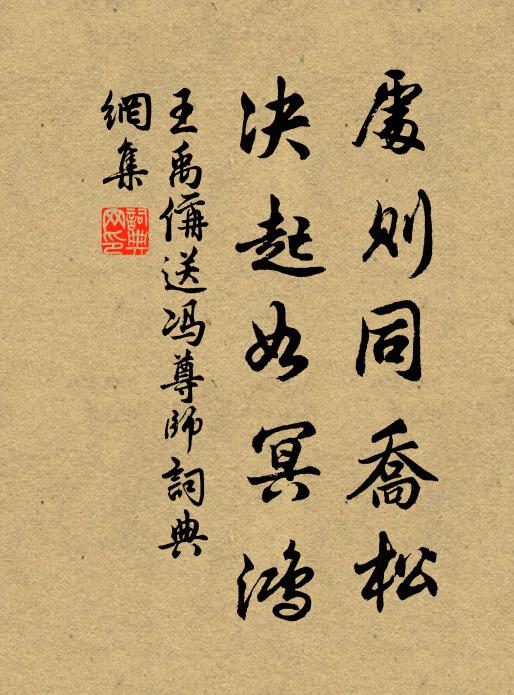 處則同喬松
決起如冥鴻
王禹偁送冯尊師詞典
網集
詞典网印